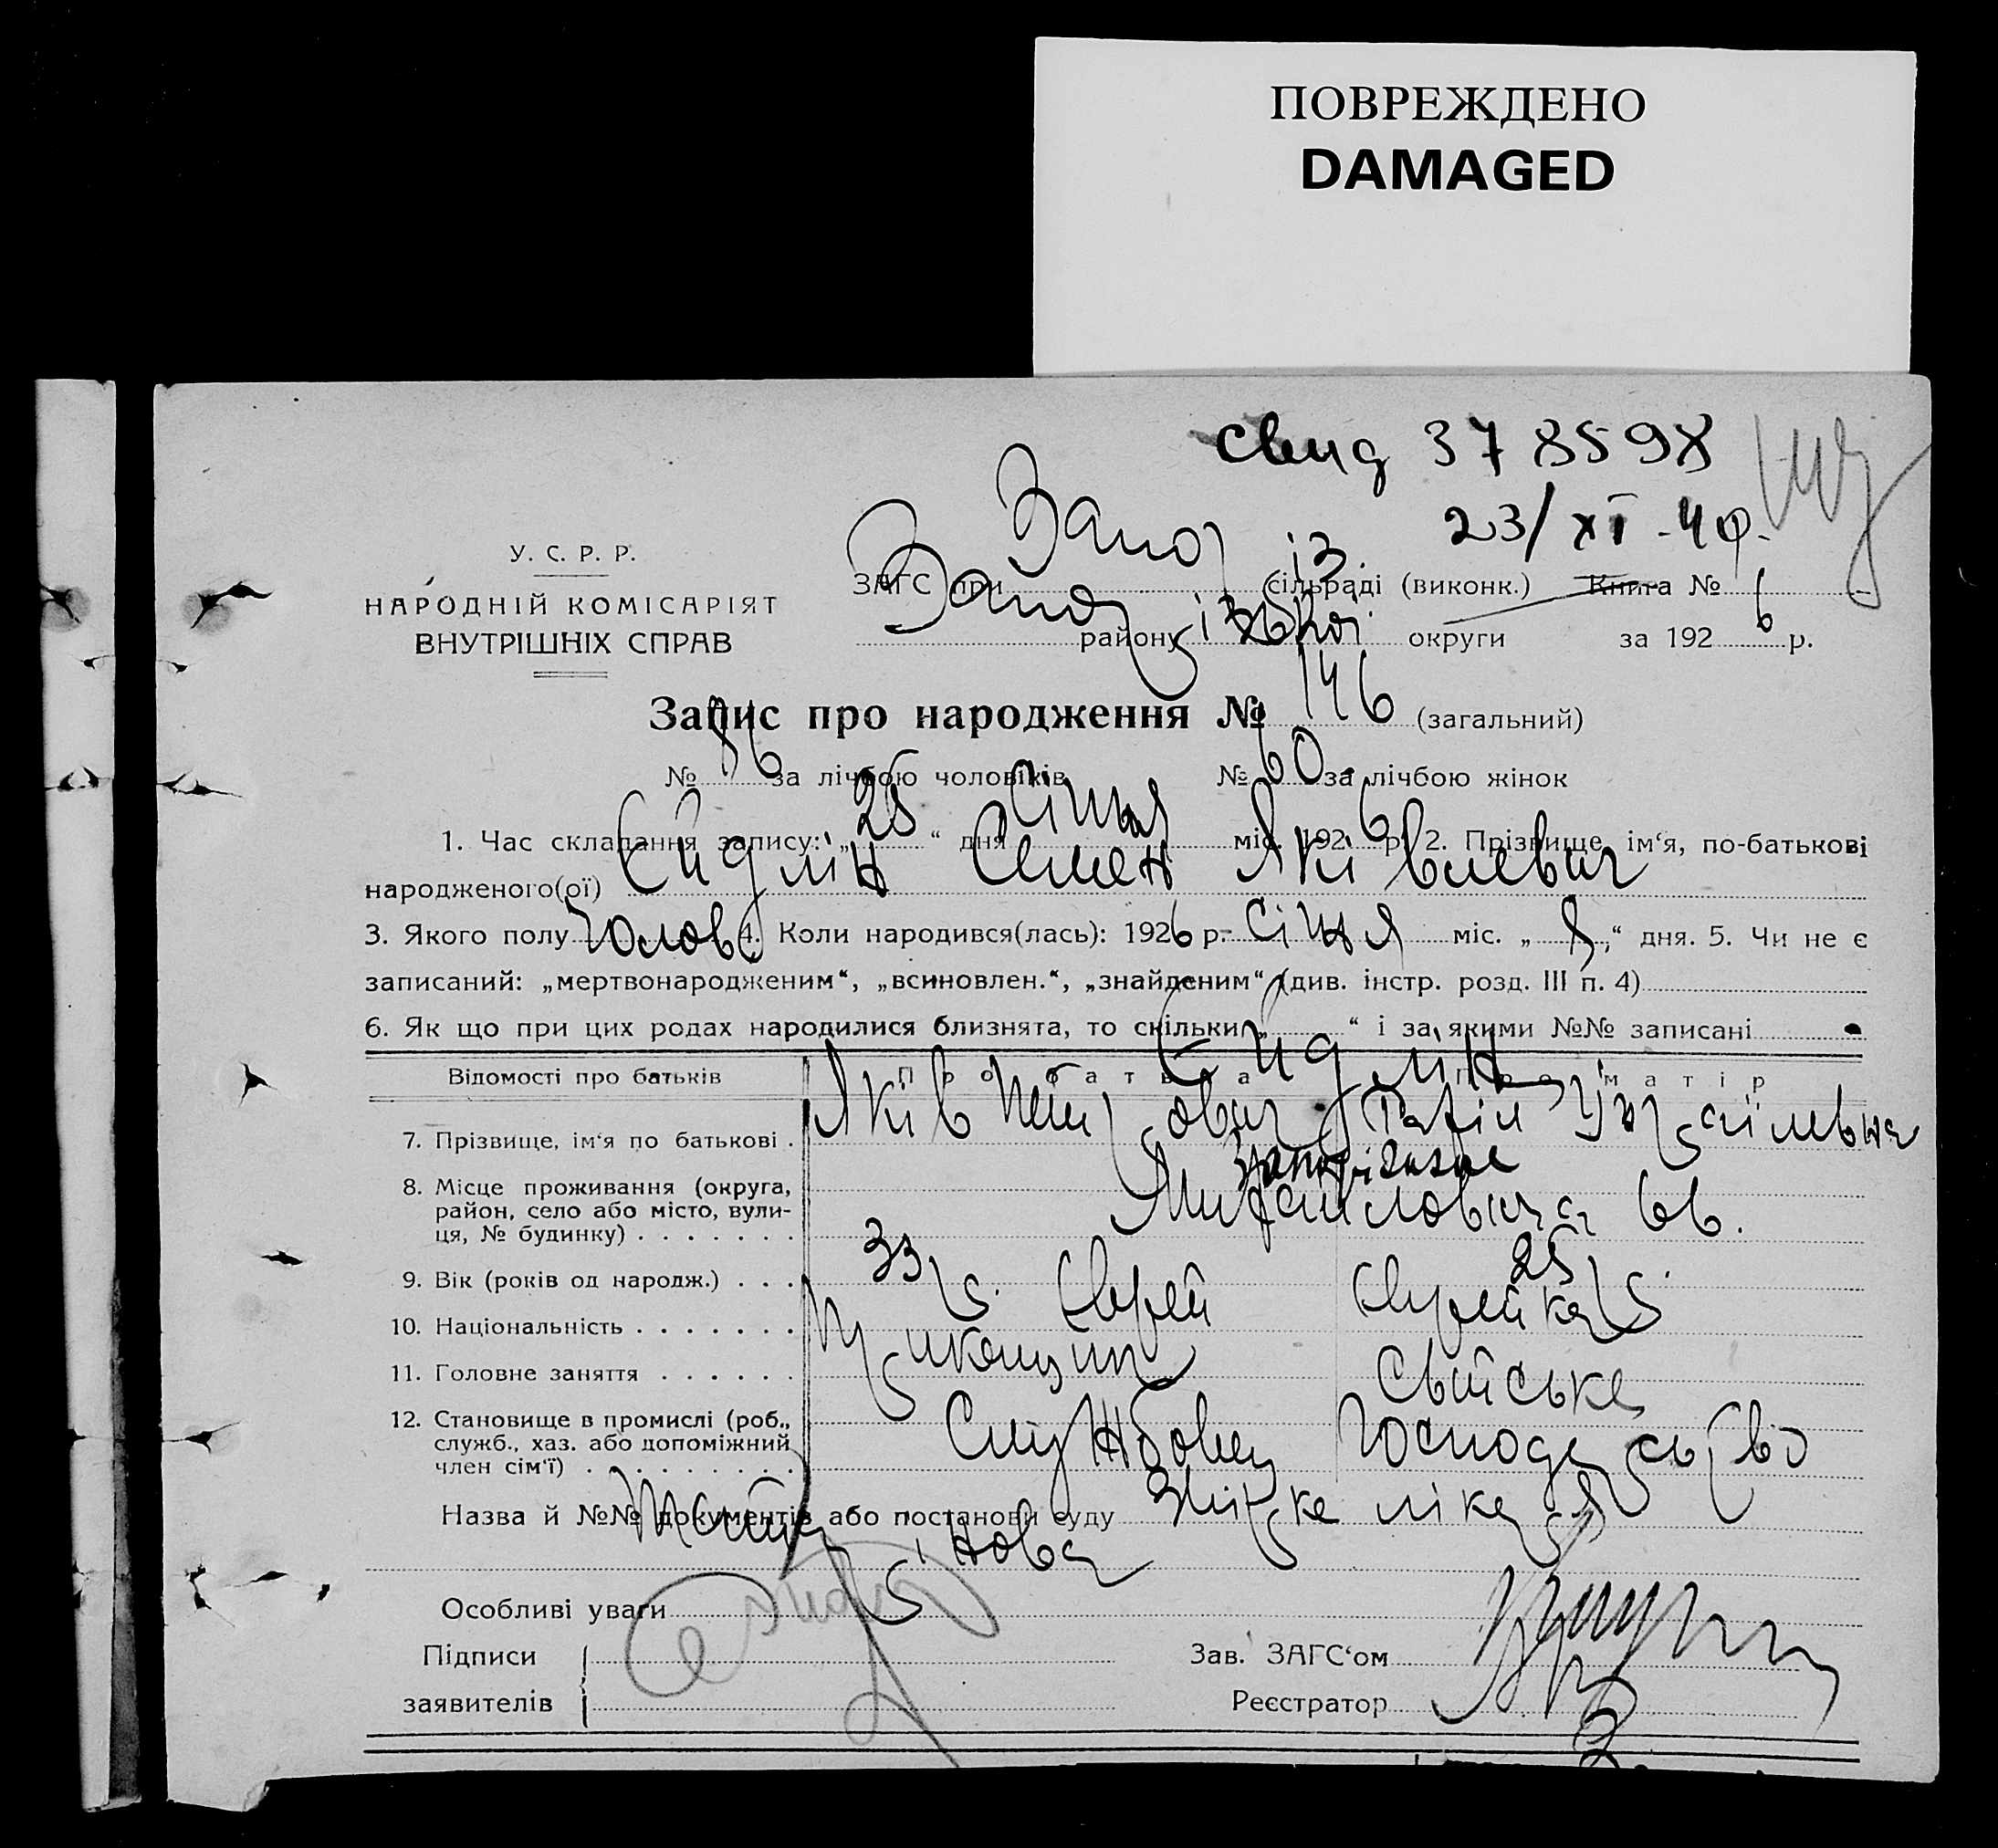 ПОВРЕЖДЕНО
DAMAGED
свид 378598
23/XI-40.
У. С. Р. Р.
НАРОДНІЙ КОМІСАРІЯТ
ВНУТРІШНІХ СПРАВ
Запоріз.
ЗАГС при сільраді (виконк.) Книга №
Запорізької
району округи за 1926 р.
Запис про народження № 146 (загальний)
№ 86 за лічбою чоловіків № 60 за лічбою жінок
1. Час складання запису: „25“ дня Січня міс. 1926 р. 2. Прізвище, ім‘я, по-батькові
народженого(ої) Сидлін Семен Яківлевич
3. Якого полу Чолов 4. Коли народився(лась): 1926 р. Січня міс. „8“ дня. 5. Чи не є
записаний: „мертвонародженим“, „всиновлен.“, „знайденим“ (див. інстр. розд. III п. 4)
6. Як що при цих родах народилися близнята, то скільки „ “ і за якими №№ записані
Сидлін
Відомості про батьків Про батька Про матір
7. Прізвище, ім‘я по батькові . Яків Петрович Ізраїлевна
8. Місце проживання (округа, район, село або місто, вулиця, № будинку) . . . . . . . Запоріжжя
Михайловича 66.
9. Вік (років од народж.) . . . 33 р. 25 р.
10. Національність . . . . . . . Єврей Єврейка
11. Головне заняття . . . . . . Прикащик Свійське
12. Становище в промислі (роб., служб., хаз. або допоміжний член сім‘ї) . . . . . . . . . Службовец Господарство
Назва й №№ документів або постанови суду лікаря
Особливі уваги
Підписи
заявителів
Зав. ЗАГС‘ом
Реєстратор